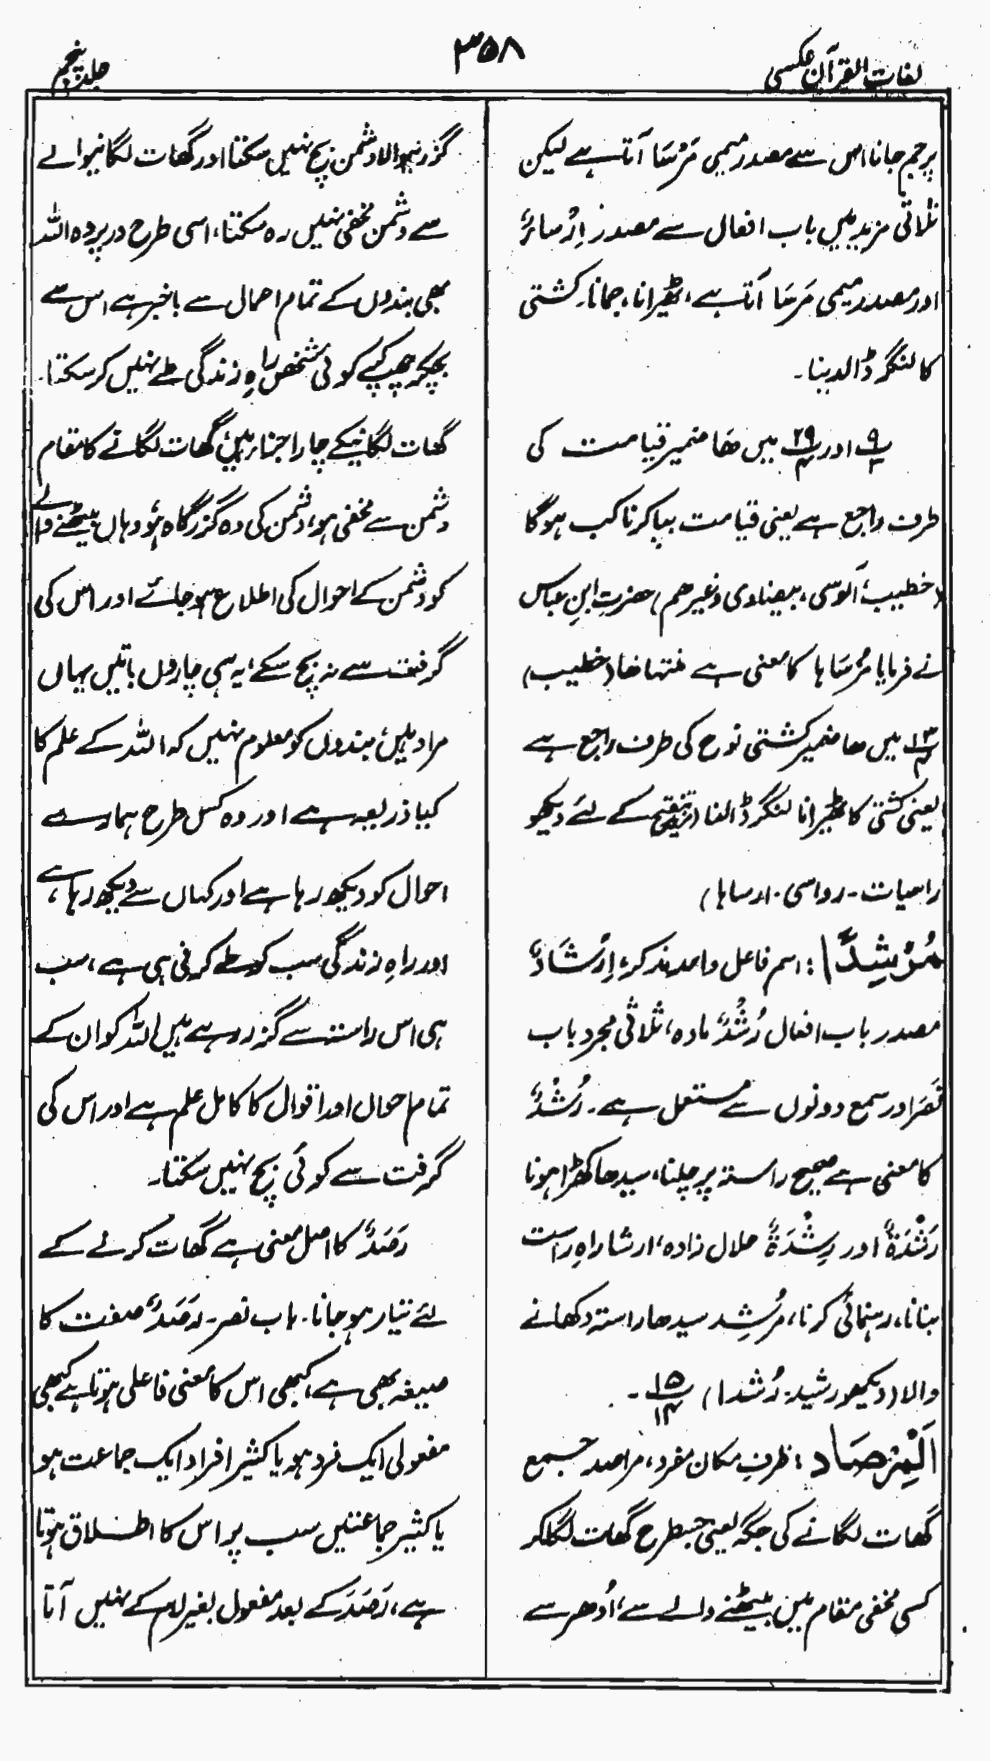 لغات القرآن عکسی
۳۵۸
جلد پنجم
پر جم جانا اس سے مصدر میمی مَرْسَا آتا ہے لیکن
ثلاثی مزید میں باب افعال سے مصدر اِرْسَاءٌ
اور مصدر میمی مَرسَا آتا ہے، ٹھیرانا، جمانا۔ کشتی
کا لنگر ڈالدینا۔
اور ۲۹ میں ھَا ضمیر قیامت کی
طرف راجع ہے یعنی قیامت بپا کرنا کب ہوگا
(خطیب، آلوسی، بیضاوی وغیرھم) حضرت ابن عباس
نے فرمایا مُرْسَاہا کا معنی ہے منتہاھا (خطیب)
میں ھا ضمیر کشتی نوح کی طرف راجع ہے
یعنی کشتی کا ٹھیرانا لنگر ڈالنا (تنقیح کے لئے دیکھو
راسیات۔ رواسی۔ ارساہا)
مُرْشِدًا: اسم فاعل واحد مذکر، اِرْشَادٌ
مصدر باب افعال رُشْدٌ مادہ، ثلاثی مجرد باب
نَصَرَ اور سمع دونوں سے مستعمل ہے۔ رُشْدٌ
کا معنی ہے صحیح راستہ پر چلنا، سیدھا کھڑا ہونا
رَشْدَةٌ اور رِشْدَةٌ حلال زادہ، ارشاد راہِ راست
بتانا، رہنمائی کرنا، مُرشِد سیدھا راستہ دکھانے
والا (دیکھو رشید۔ رُشدا) ۱۵/۱۴۔
اَلْمِرْصَاد: ظرف مکان مفرد، مراصد جمع
گھات لگانے کی جگہ یعنی جسطرح گھات لگا کر
کسی مخفی مقام میں بیٹھنے والے سے، اُدھر سے
گزرنیوالا دشمن بچ نہیں سکتا اور گھات لگانیوالے
سے دشمن مخفی نہیں رہ سکتا، اسی طرح در پردہ اللہ
بھی بندوں کے تمام اعمال سے باخبر ہے اس سے
بچکر چھپ کے کوئی شخص راہِ زندگی طے نہیں کر سکتا۔
گھات لگانیکے چار اجزاء ہیں، گھات لگانے کا مقام
دشمن سے مخفی ہو، دشمن کی وہ گزرگاہ ہو، وہاں بیٹھنے والے
کو دشمن کے احوال کی اطلاع ہو جائے اور اس کی
گرفت سے نہ بچ سکے، یہ ہی چاروں باتیں یہاں
مراد ہیں، بندوں کو معلوم نہیں کہ اللہ کے علم کا
کیا ذریعہ ہے اور وہ کس طرح ہمارے
احوال کو دیکھ رہا ہے اور کہاں سے دیکھ رہا ہے،
اور راہِ زندگی سب کو طے کرنی ہی ہے، سب
ہی اس راستہ سے گزر رہے ہیں اللہ کو ان کے
تمام احوال اور اقوال کا کامل علم ہے اور اس کی
گرفت سے کوئی بچ نہیں سکتا۔
رَصَدٌ کا اصل معنی ہے گھات کرنے کے
لئے تیار ہو جانا۔ باب نصر۔ رَصَدٌ صفت کا
صیغہ بھی ہے، کبھی اس کا معنی فاعلی ہوتا ہے کبھی
مفعولی ایک فرد ہو یا کثیر افراد ایک جماعت ہو
یا کثیر جماعتیں سب پر اس کا اطلاق ہوتا
ہے، رَصَدَ کے بعد مفعول بغیر لام کے نہیں آتا